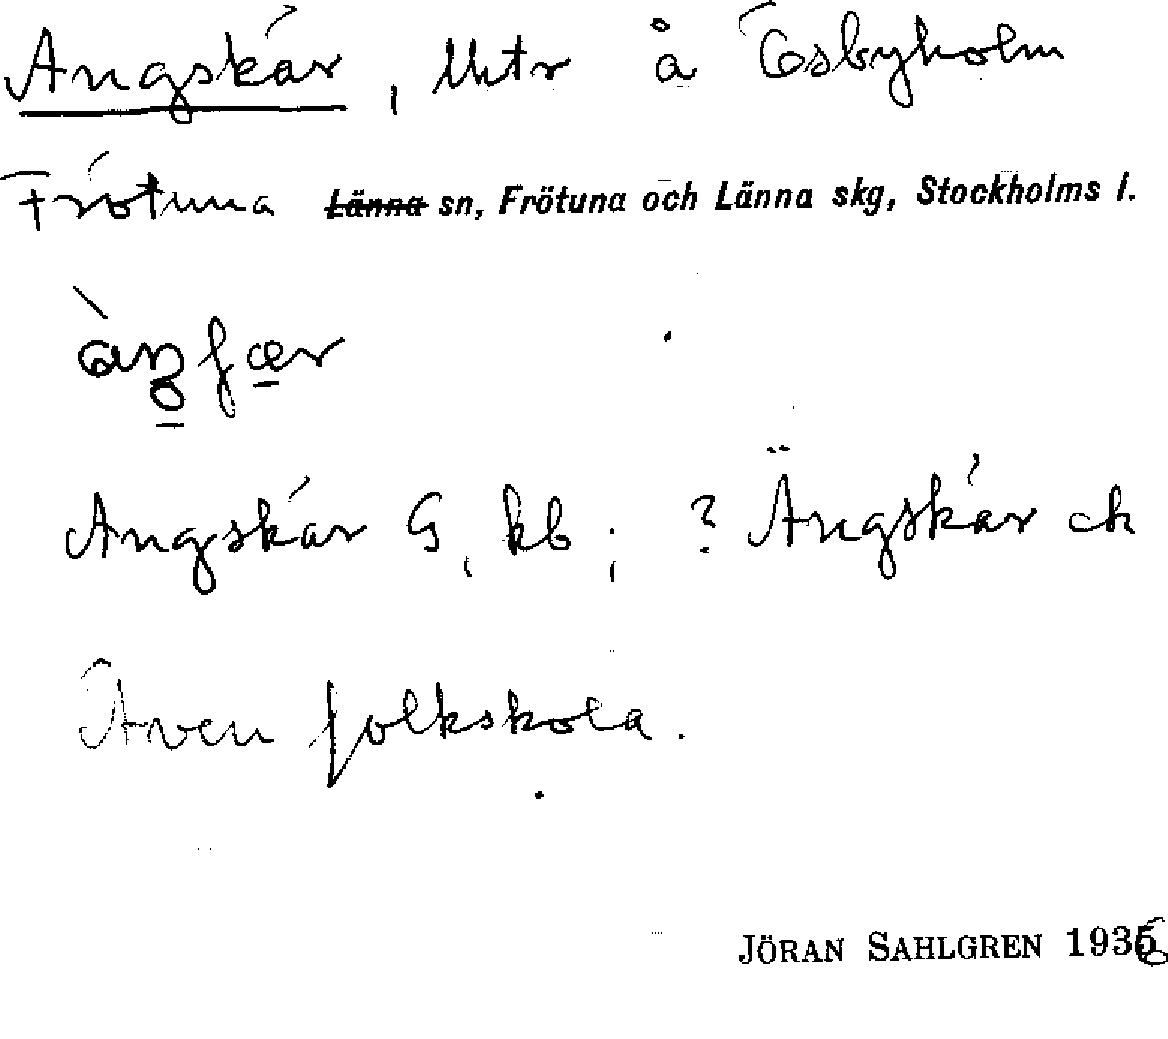 Angskär, å Ösbyholm
Frötuna Länna sn, Frötuna och Länna skg, Stockholms l.
àŋʃær
Angskär G, kb; ? Ängskär ek
Även folkskola.
JÖRAN SAHLGREN 1936